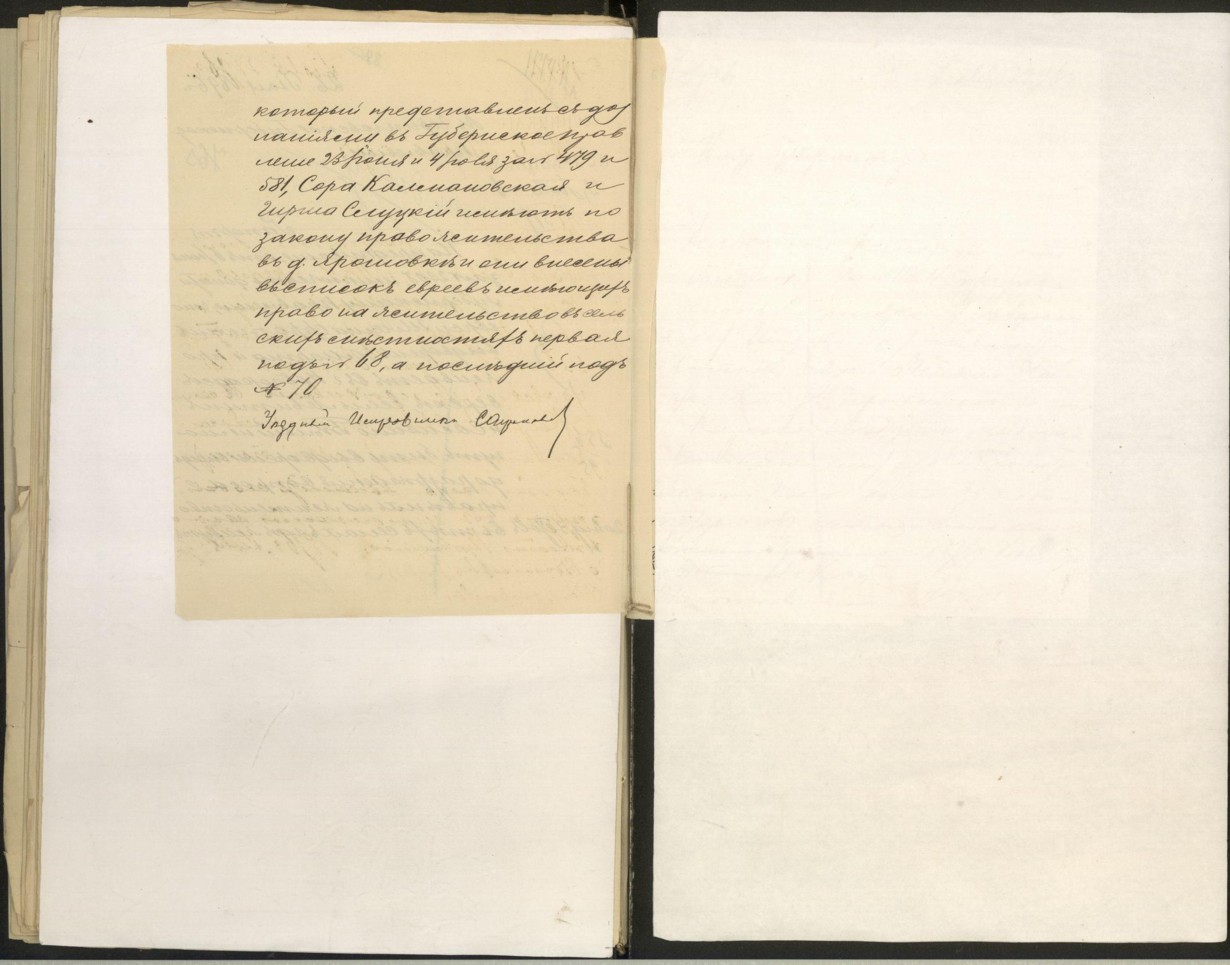 который представленъ съ доз
наніями въ Губернское прав
леніе 23 Іюня и 4 Іюля за № 479 и
581, Сора Калмановская и
Гирша Слуцкій имѣютъ по
закону право жительства
въ д. Ярошовкѣ и они внесены
въ списокъ евреевъ имѣющихъ
право на жительство въ сель
скихъ мѣстностяхъ первая
подъ № 68, а послѣдній подъ
№ 70
Уѣздный Исправникъ